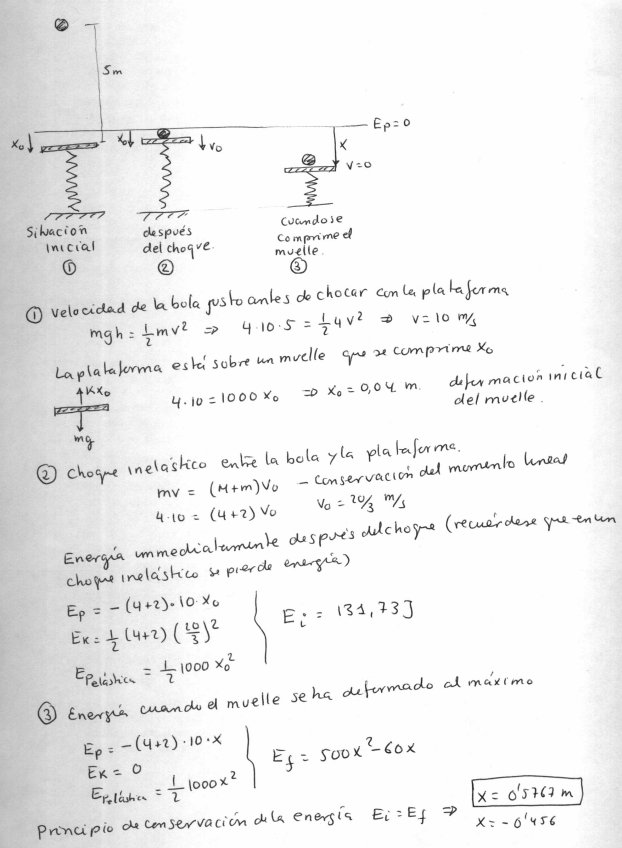 5m
Ep=0
x₀
x₀
v₀
x
v=0
Situación
Inicial
①
después
del choque.
②
Cuando se
comprime el
muelle.
③
① Velocidad de la bola justo antes de chocar con la plataforma
mgh = 1/2 mv² ⇒ 4·10·5 = 1/2 4v² ⇒ v = 10 m/s
La plataforma está sobre un muelle que se comprime x₀
Kx₀
4·10 = 1000 x₀ ⇒ x₀ = 0,04 m. deformación inicial
del muelle.
mg
② Choque inelástico entre la bola y la plataforma.
mv = (M+m)v₀ – conservación del momento lineal
4·10 = (4+2) v₀ v₀ = 20/3 m/s
Energía immediatamente después del choque (recuérdese que en un
choque inelástico se pierde energía)
Ep = -(4+2)·10·x₀
Ek = 1/2 (4+2) (20/3)²
Ei = 131,73J
Ep elástica = 1/2 1000 x₀²
③ Energía cuando el muelle se ha deformado al máximo
Ep = -(4+2)·10·x
Ek = 0
Ef = 500x²-60x
Ep elástica = 1/2 1000x²
Principio de conservación de la energía Ei = Ef ⇒ x = 0'5767 m
x = -0'456